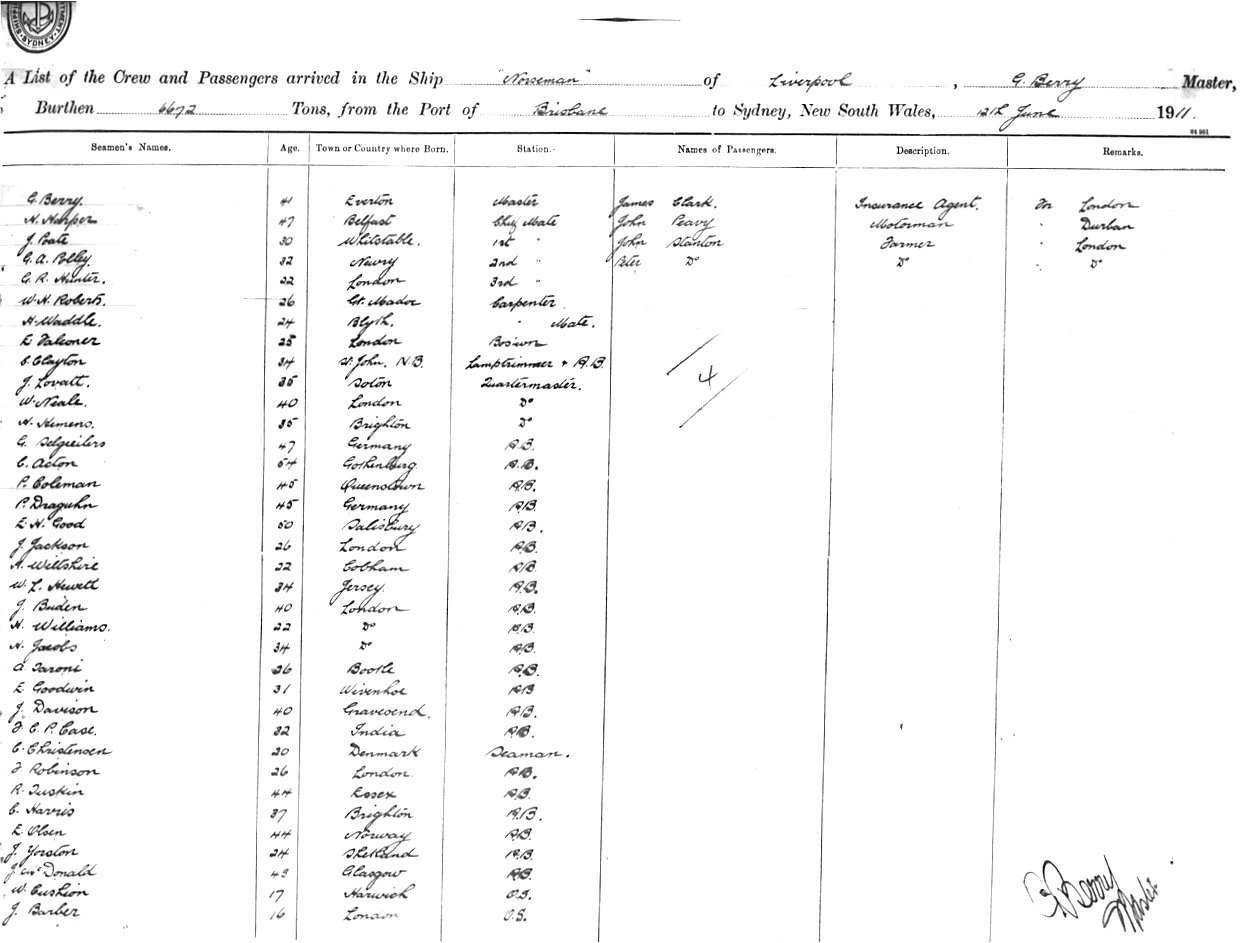 SYDNEY
A List of the Crew and Passengers arrived in the Ship "Norseman" of Liverpool, G. Berry Master,
Burthen 6672 Tons, from the Port of Brisbane to Sydney, New South Wales, 12th June 1911.
Seamen's Names. Age. Town or Country where Born. Station. Names of Passengers. Description. Remarks.
G. Berry. 41 Everton Master James Clark. Insurance Agent. For London
H. Harper 47 Belfast Chief Mate John Peavy Motorman " Durban
J. Poate 30 Whitstable. 1st " John Stanton Farmer " London
G. A. Polley. 32 Newry 2nd " Peter Do Do " Do
G. R. Hunter. 22 London 3rd "
W. H. Roberts. 26 Carpenter
H. Waddle. 24 Blyth. " Mate.
E Falconer 25 London Bos'wn
C. Clayton 34 St. John. N.B. Lamptrimmer + A.B.
J. Lovatt. 35 Soton Quartermaster.
4
W. Neale. 40 London Do
H. Hemens. 35 Brighton Do
G. 47 Germany A.B.
C. Acton 54 Gothenburg A.B.
P. Coleman 45 Queenstown A.B.
P. Draguhn 45 Germany A.B.
E. H. Good 50 Salisbury A.B.
J. Jackson 26 London A.B.
A. Wiltshire 22 Cobham A.B.
W. L. Hewett 34 Jersey. A.B.
J. Buden 40 London A.B.
H. Williams. 22 Do A.B.
H. Jacobs 34 Do A.B.
Taroni 26 Bootle A.B.
E Goodwin 31 Wivenhoe A.B
J. Davison 40 Gravesend. A.B.
F. C. P. Case. 32 India A.B.
C. Christensen 20 Denmark Seaman.
F Robinson 26 London A.B.
R. Tuskin 44 Essex A.B.
C. Harris 37 Brighton A.B.
E Olsen 44 Norway A.B.
J. Yorston 24 Shetland A.B.
J. McDonald 43 Glasgow A.B.
W. Cushion 17 Harwich O.S.
J. Barber 16 London O.S.
G. Berry
Master